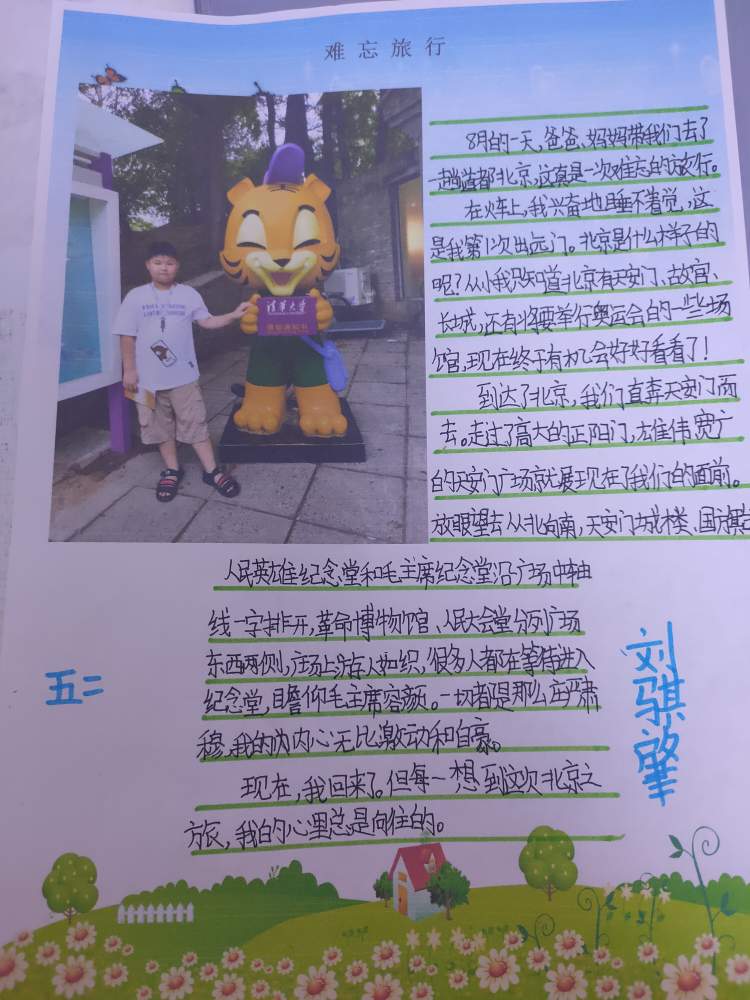 难忘旅行
清华大学
8月的一天,爸爸、妈妈带我们去了
一趟首都北京,这真是一次难忘的旅行。
在火车上,我兴奋地睡不着觉,这
是我第1次出远门。北京是什么样子的
呢?从小我只知道北京有天安门、故宫、
长城,还有将要举行奥运会的一些场
馆,现在终于有机会好好看看了!
到达了北京,我们直奔天安门而
去。走过了高大的正阳门,雄伟宽广
的天安门广场就展现在了我们的面前。
放眼望去从北向南,天安门城楼、国旗
人民英雄纪念堂和毛主席纪念堂沿广场中轴
线一字排开,革命博物馆、人民大会堂分列广场
东西两侧,广场上游人如织,很多人都在等待进入
纪念堂,瞻仰毛主席容颜。一切都是那么庄严肃
穆,我的内心无比激动和自豪。
现在,我回来了。但每一想到这次北京之
旅,我的心里总是向往的。
五二
刘骐肇